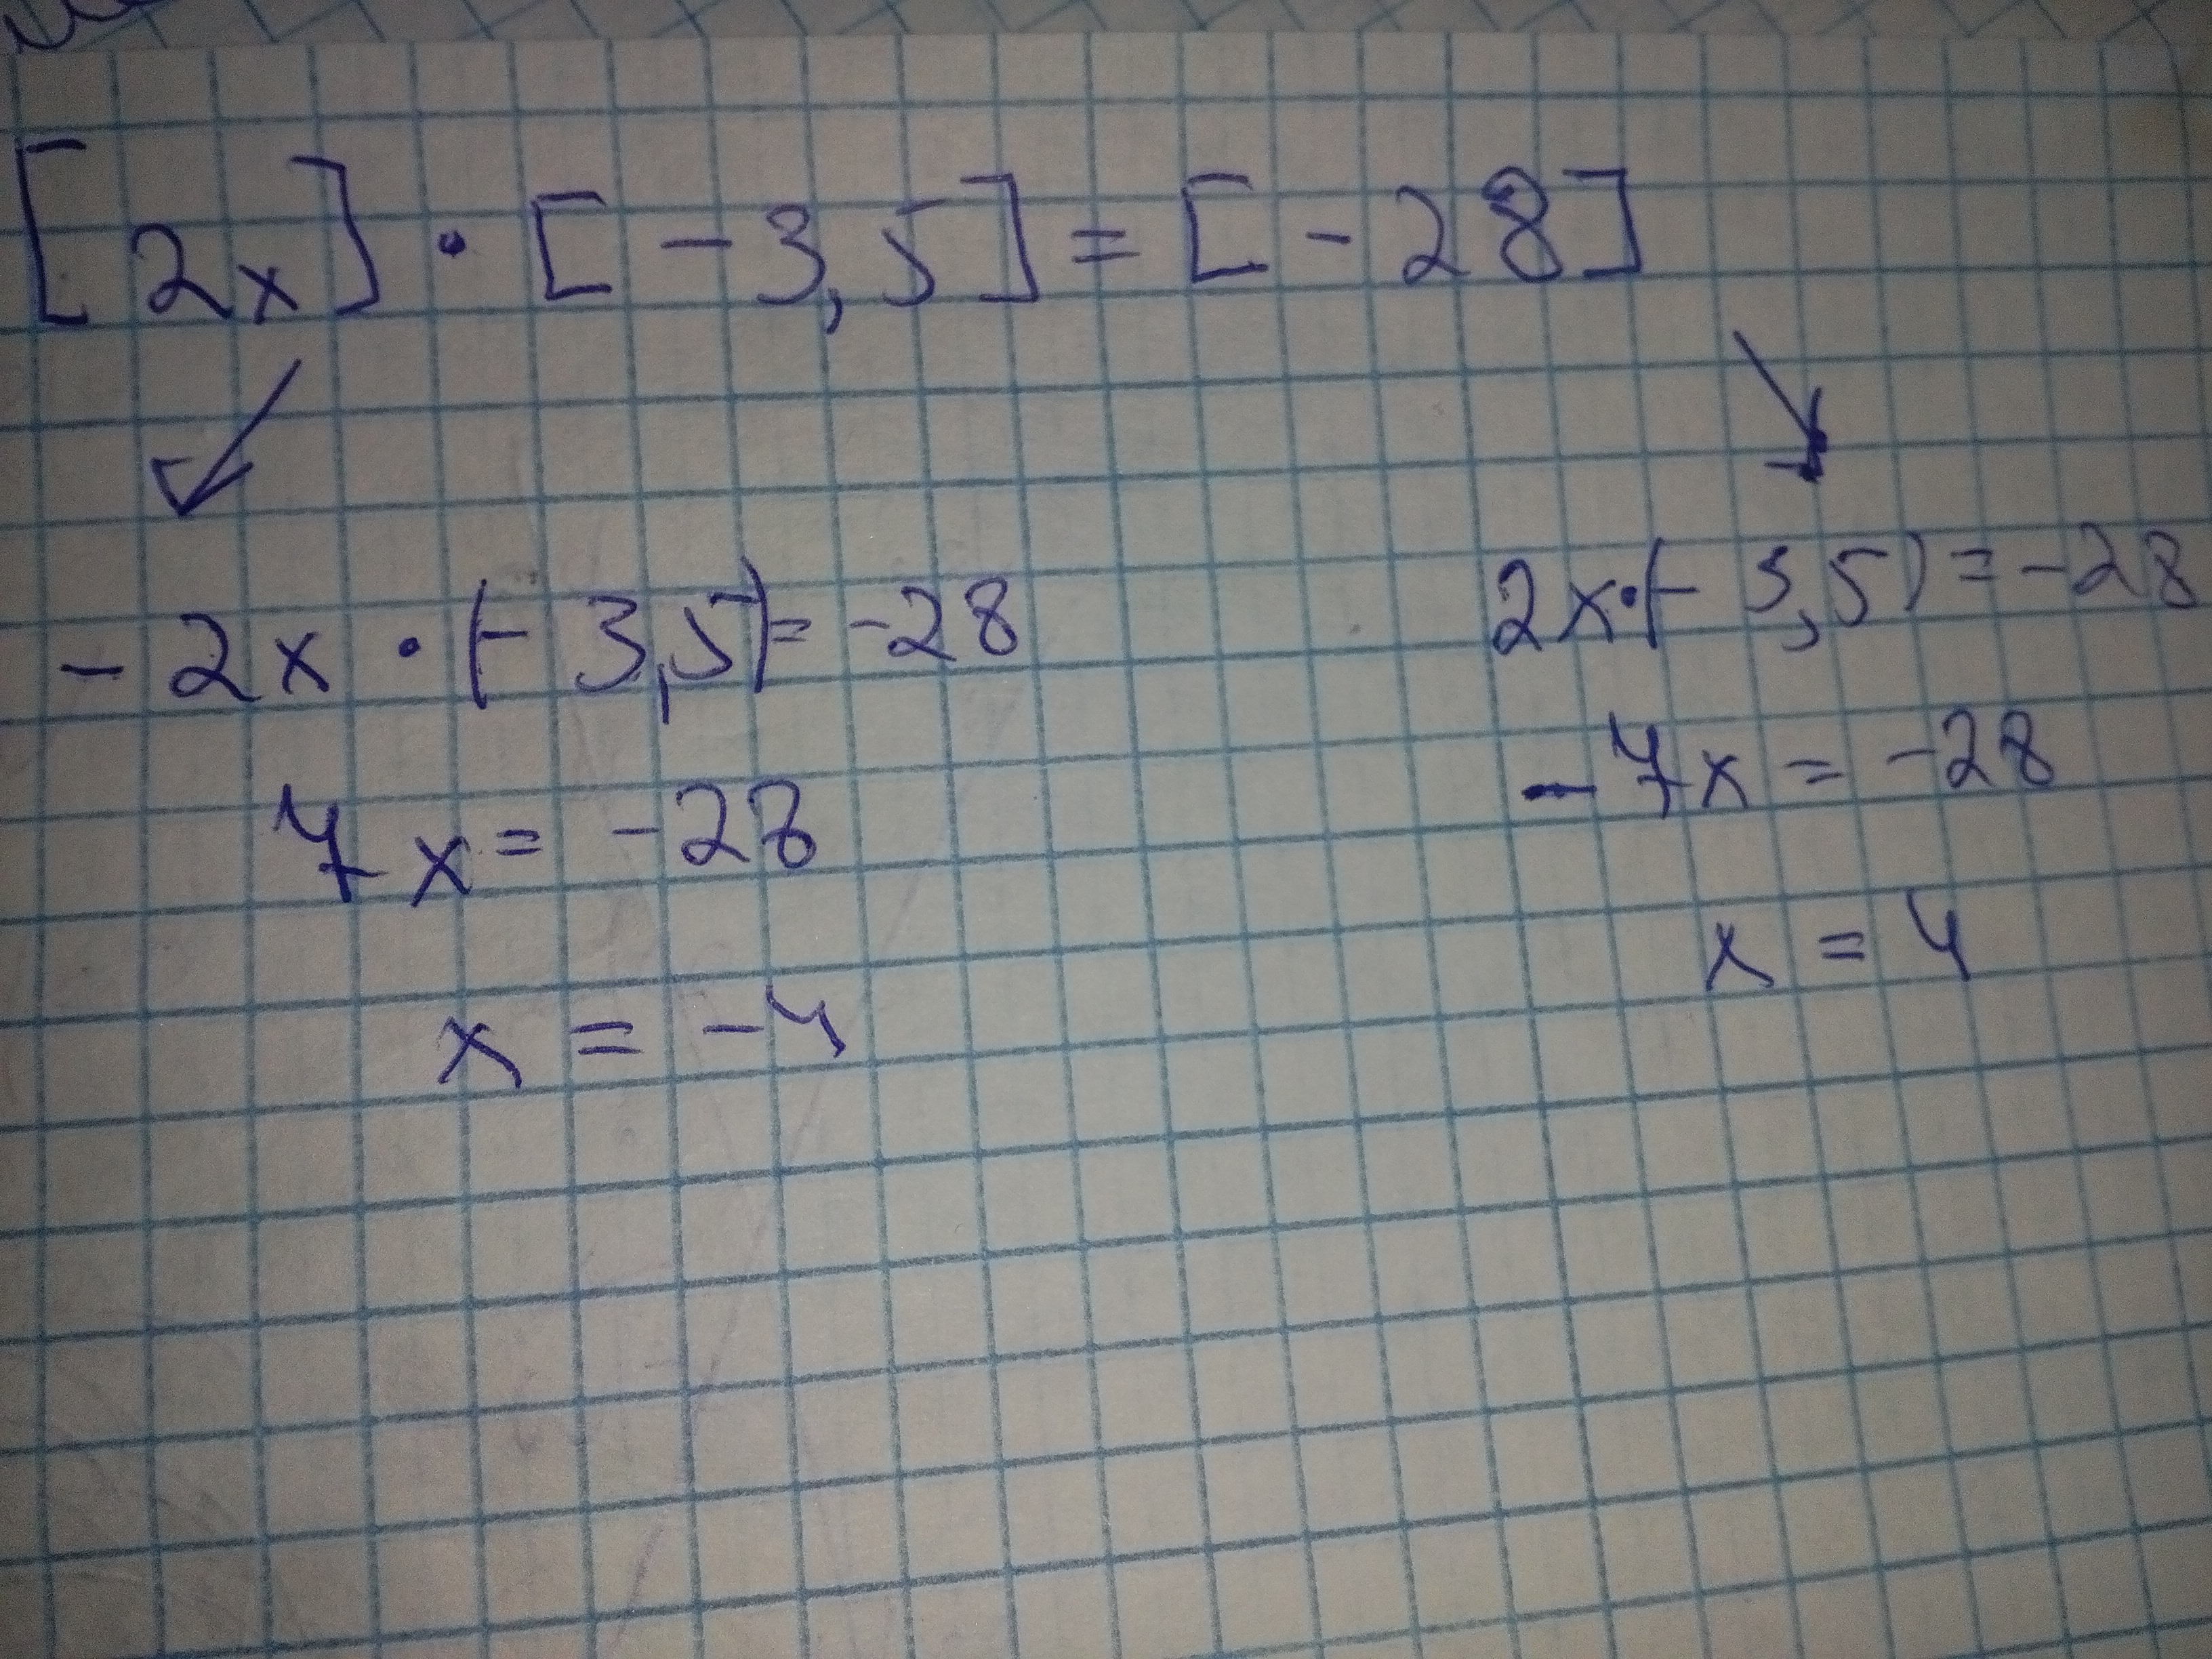 [2x] · [-3,5] = [-28]
-2x · (-3,5) = -28
7x = -28
x = -4
2x·(-3,5) = -28
-7x = -28
x = 4